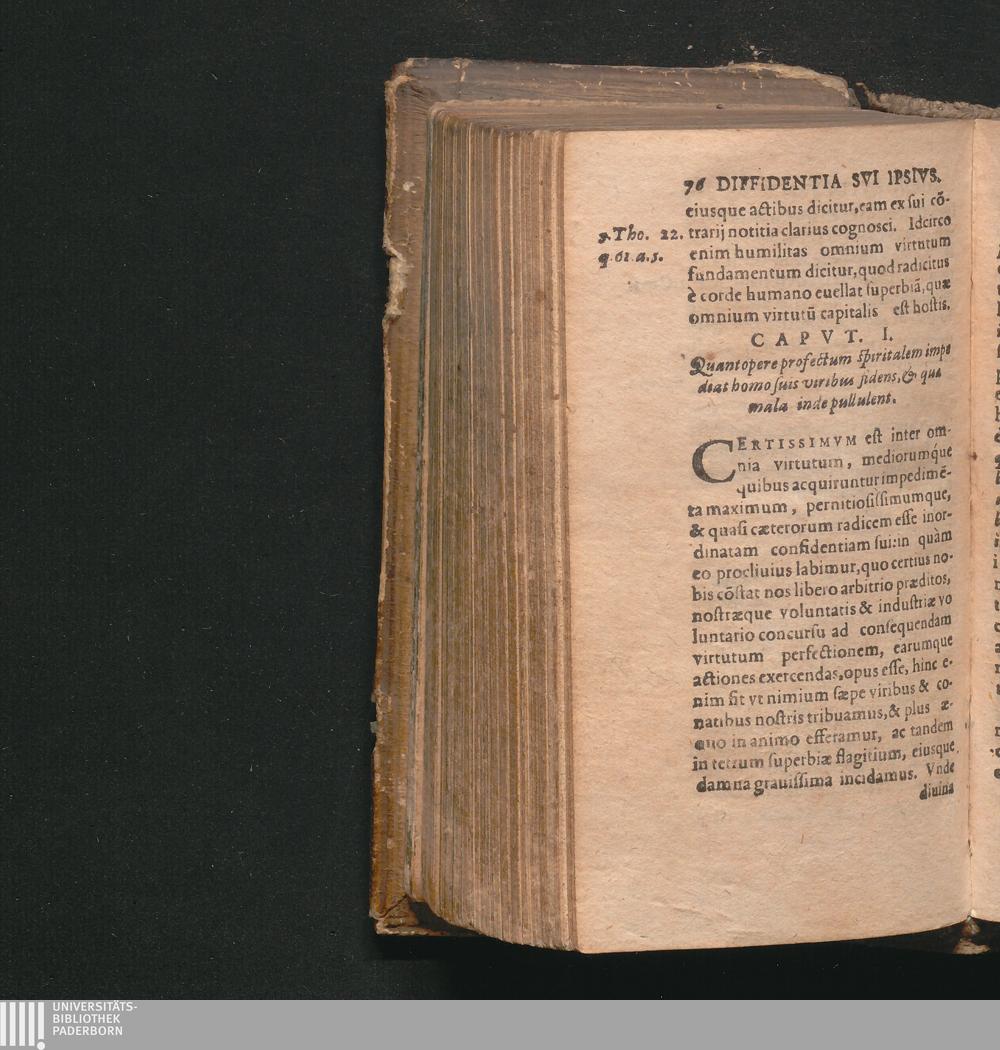 76 DIFFIDENTIA SVI IPSIVS.
eiusque actibus dicitur, eam ex sui cō-
trarij notitia clarius cognosci. Idcirco
enim humilitas omnium virtutum
fundamentum dicitur, quod radicitus
è corde humano euellat superbiā, quæ
omnium virtutū capitalis est hostis.
s. Tho. 22.
q. 61. a. 5.
CAPVT. I.
Quantopere profectum spiritalem impe
diat homo suis viribus fidens, & quæ
mala inde pullulent.
CERTISSIMVM est inter om-
nia virtutum, mediorumq́ue
quibus acquiruntur impedimē-
ta maximum, pernitiosissimumque,
& quasi cæterorum radicem esse inor-
dinatam confidentiam sui: in quàm
eo procliuius labimur, quo certius no-
bis cōstat nos libero arbitrio præditos,
nostræque voluntatis & industriæ vo
luntario concursu ad consequendam
virtutum perfectionem, earumque
actiones exercendas, opus esse, hinc e-
nim fit vt nimium sæpe viribus & co-
natibus nostris tribuamus, & plus æ-
quo in animo efferamur, ac tandem
in tetrum superbiæ flagitium, eiusque
damna grauissima incidamus. Vnde
diuina
UNIVERSITÄTS-
BIBLIOTHEK
PADERBORN